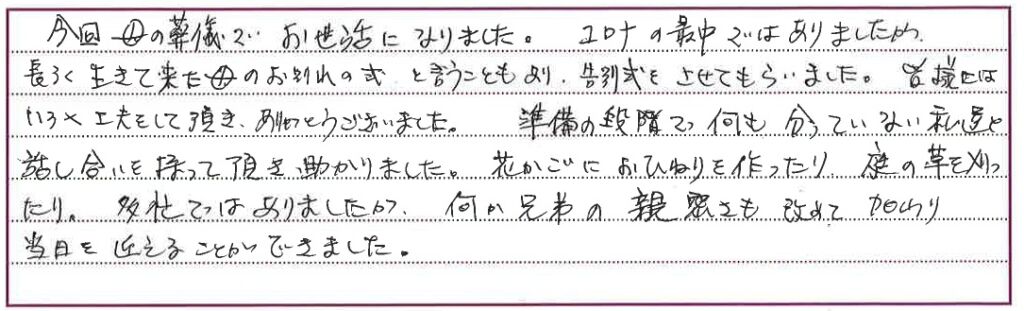 今回母の葬儀で お世話になりました。 コロナの最中ではありましたが、
長らく生きて来た母のお別れの式 と言うこともあり、告別式をさせてもらいました。 皆様には
いろ々工夫をして頂き、ありがとうございました。 準備の段階で何も分っていない私達と
話し合いを持って頂き、助かりました。花かごにおひねりを作ったり 庭の草を刈っ
たり。 多忙ではありましたが、 何か兄弟の親密さも改めて加わり
当日を迎えることができました。